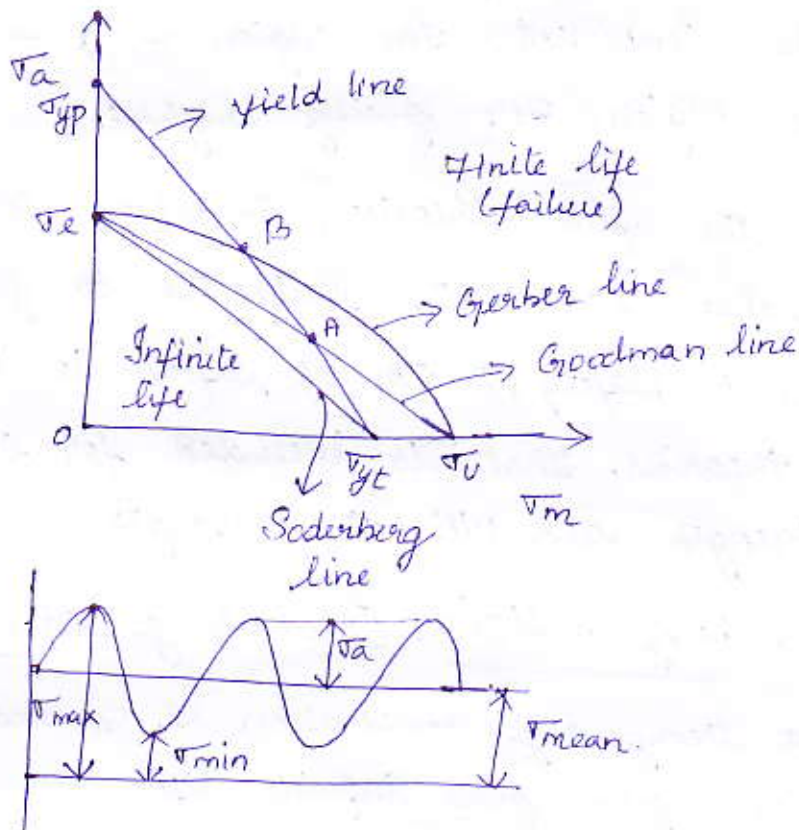 σa
σyp
yield line
Finite life
(failure)
σe
B
Gerber line
A
Goodman line
Infinite
life
O
σyt
σu
σm
Soderberg
line
σa
σmax
σmin
σmean